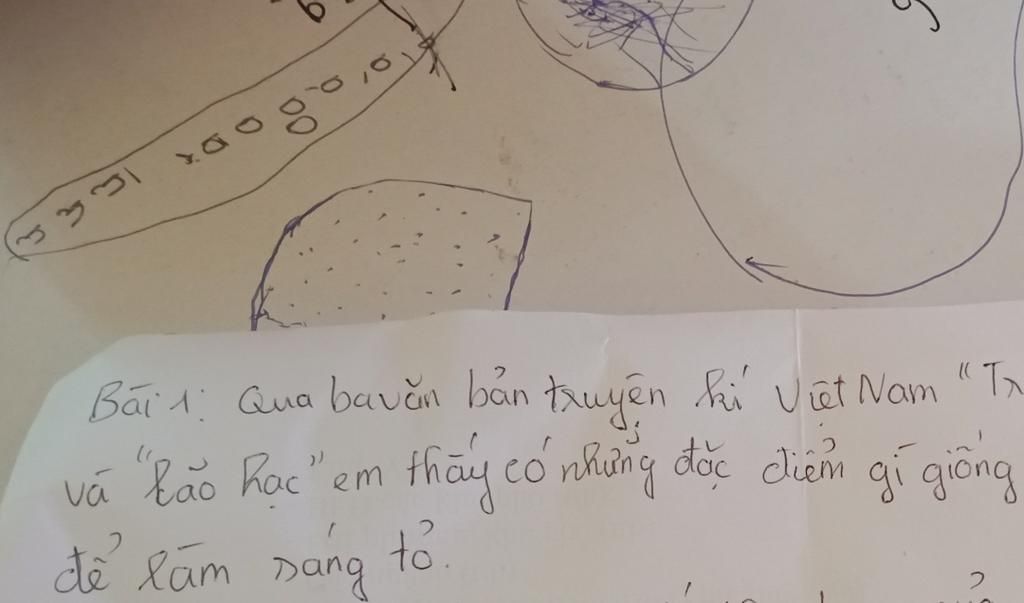 Bài 1: Qua ba văn bản truyện kí Việt Nam "Tr
và "Lão Hạc" em thấy có những đặc điểm gì giống
để làm sáng tỏ.